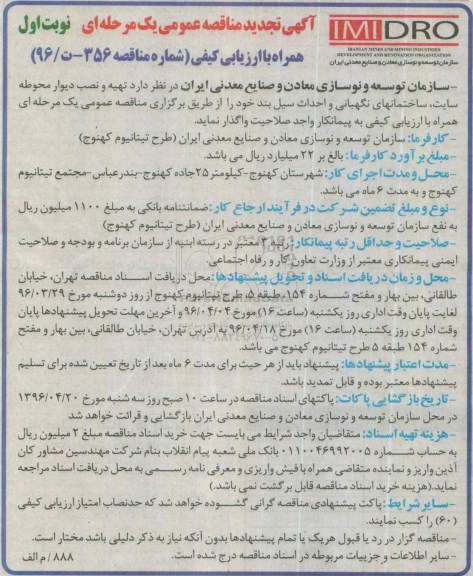 IMIDRO
IRANIAN MINES AND MINING INDUSTRIES
DEVELOPMENT AND RENOVATION ORGANIZATION
سازمان توسعه و نوسازی معادن و صنایع معدنی ایران
آگهی تجدید مناقصه عمومی یک مرحله ای نوبت اول
همراه با ارزیابی کیفی (شماره مناقصه ۳۵۶-ت/۹۶)
-سازمان توسعه و نوسازی معادن و صنایع معدنی ایران در نظر دارد تهیه و نصب دیوار محوطه
سایت، ساختمانهای نگهبانی و احداث سیل بند خود را از طریق برگزاری مناقصه عمومی یک مرحله ای
همراه با ارزیابی کیفی به پیمانکار واجد صلاحیت واگذار نماید.
-کارفرما: سازمان توسعه و نوسازی معادن و صنایع معدنی ایران (طرح تیتانیوم کهنوج)
-مبلغ برآورد کارفرما: بالغ بر ۲۲ میلیارد ریال می باشد.
-محل و مدت اجرای کار: شهرستان کهنوج-کیلومتر ۲۵ جاده کهنوج-بندرعباس-مجتمع تیتانیوم
کهنوج و به مدت ۶ ماه می باشد.
-نوع و مبلغ تضمین شرکت در فرآیند ارجاع کار: ضمانتنامه بانکی به مبلغ ۱۱۰۰ میلیون ریال
به نفع سازمان توسعه و نوسازی معادن و صنایع معدنی ایران (طرح تیتانیوم کهنوج)
-صلاحیت و حداقل رتبه پیمانکار: رتبه ۳ معتبر در رسته ابنیه از سازمان برنامه و بودجه و صلاحیت
ایمنی پیمانکاری معتبر از وزارت تعاون کار و رفاه اجتماعی.
-محل و زمان دریافت اسناد و تحویل پیشنهادها: محل دریافت اسناد مناقصه تهران، خیابان
طالقانی، بین بهار و مفتح شماره ۱۵۴، طبقه ۵، طرح تیتانیوم کهنوج از روز دوشنبه مورخ ۹۶/۰۳/۲۹
لغایت پایان وقت اداری روز یکشنبه (ساعت ۱۶) مورخ ۹۶/۰۴/۰۴ و آخرین مهلت تحویل پیشنهادها پایان
وقت اداری روز یکشنبه (ساعت ۱۶) مورخ ۹۶/۰۴/۱۸ به آدرس تهران، خیابان طالقانی، بین بهار و مفتح
شماره ۱۵۴ طبقه ۵ طرح تیتانیوم کهنوج می باشد.
-مدت اعتبار پیشنهادها: پیشنهاد باید از هر حیث برای مدت ۶ ماه بعد از تاریخ تعیین شده برای تسلیم
پیشنهادها معتبر بوده و قابل تمدید باشد.
-تاریخ بازگشایی پاکات: پاکتهای اسناد مناقصه در ساعت ۱۰ صبح روز سه شنبه مورخ ۱۳۹۶/۰۴/۲۰
در محل سازمان توسعه و نوسازی معادن و صنایع معدنی ایران بازگشایی و قرائت خواهد شد
-هزینه تهیه اسناد: متقاضیان واجد شرایط می بایست جهت خرید اسناد مناقصه مبلغ ۲ میلیون ریال
به حساب شماره ۰۱۱۰۰۴۶۹۹۲۰۰۵ بانک ملی شعبه پیام انقلاب بنام شرکت مهندسین مشاور کان
آذین واریز و نماینده متقاضی همراه با فیش واریزی و معرفی نامه رسمی به محل دریافت اسناد مراجعه
نماید.(هزینه خرید اسناد مناقصه قابل برگشت نمی باشد.)
-سایر شرایط: پاکت پیشنهادی مناقصه گرانی گشوده خواهد شد که حدنصاب امتیاز ارزیابی کیفی
(۶۰) را کسب نمایند.
- مناقصه گزار در رد یا قبول هریک یا تمام پیشنهادها بدون آنکه نیاز به ذکر دلیلی باشد مختار است.
- سایر اطلاعات و جزییات مربوطه در اسناد مناقصه درج شده است.
۸۸۸ / م الف